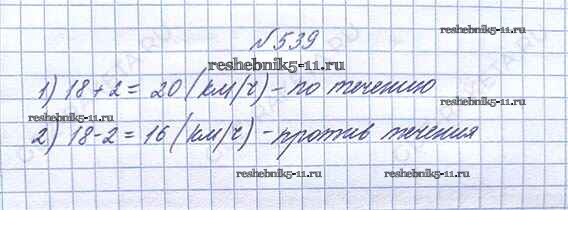 №539
reshebnik5-11.ru
reshebnik5-11.ru
1) 18+2 = 20 (км/ч) - по течению
reshebnik5-11.ru
2) 18-2 = 16 (км/ч) - против течения
reshebnik5-11.ru
reshebnik5-11.ru